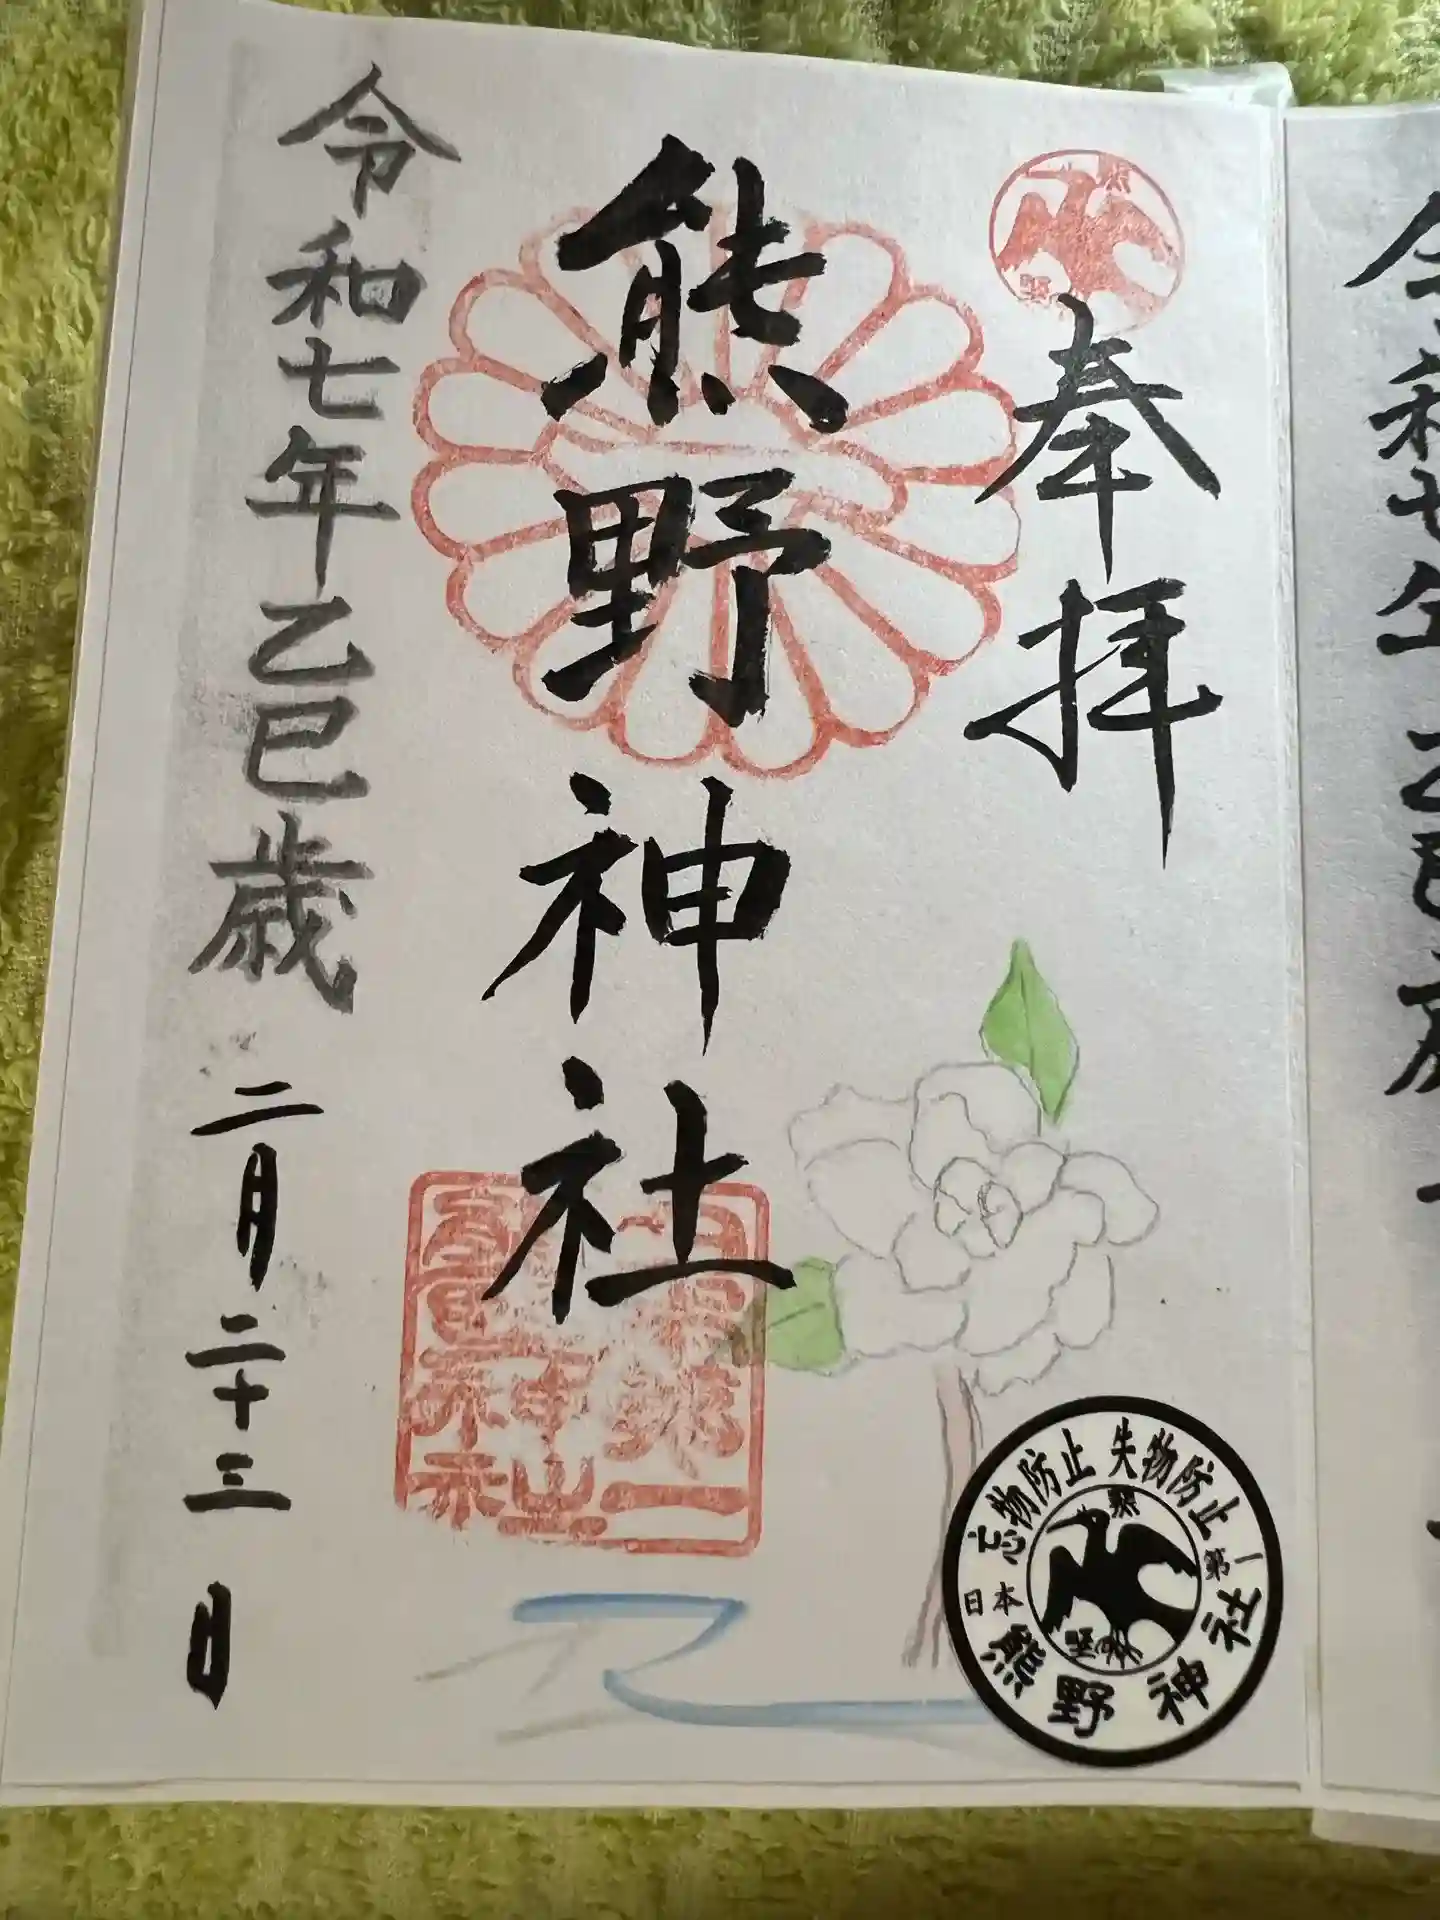 奉拝
熊野神社
令和七年乙巳歳 二月二十三日
忘物防止 失物防止
日本 第一
熊野神社
令和七年乙巳歳